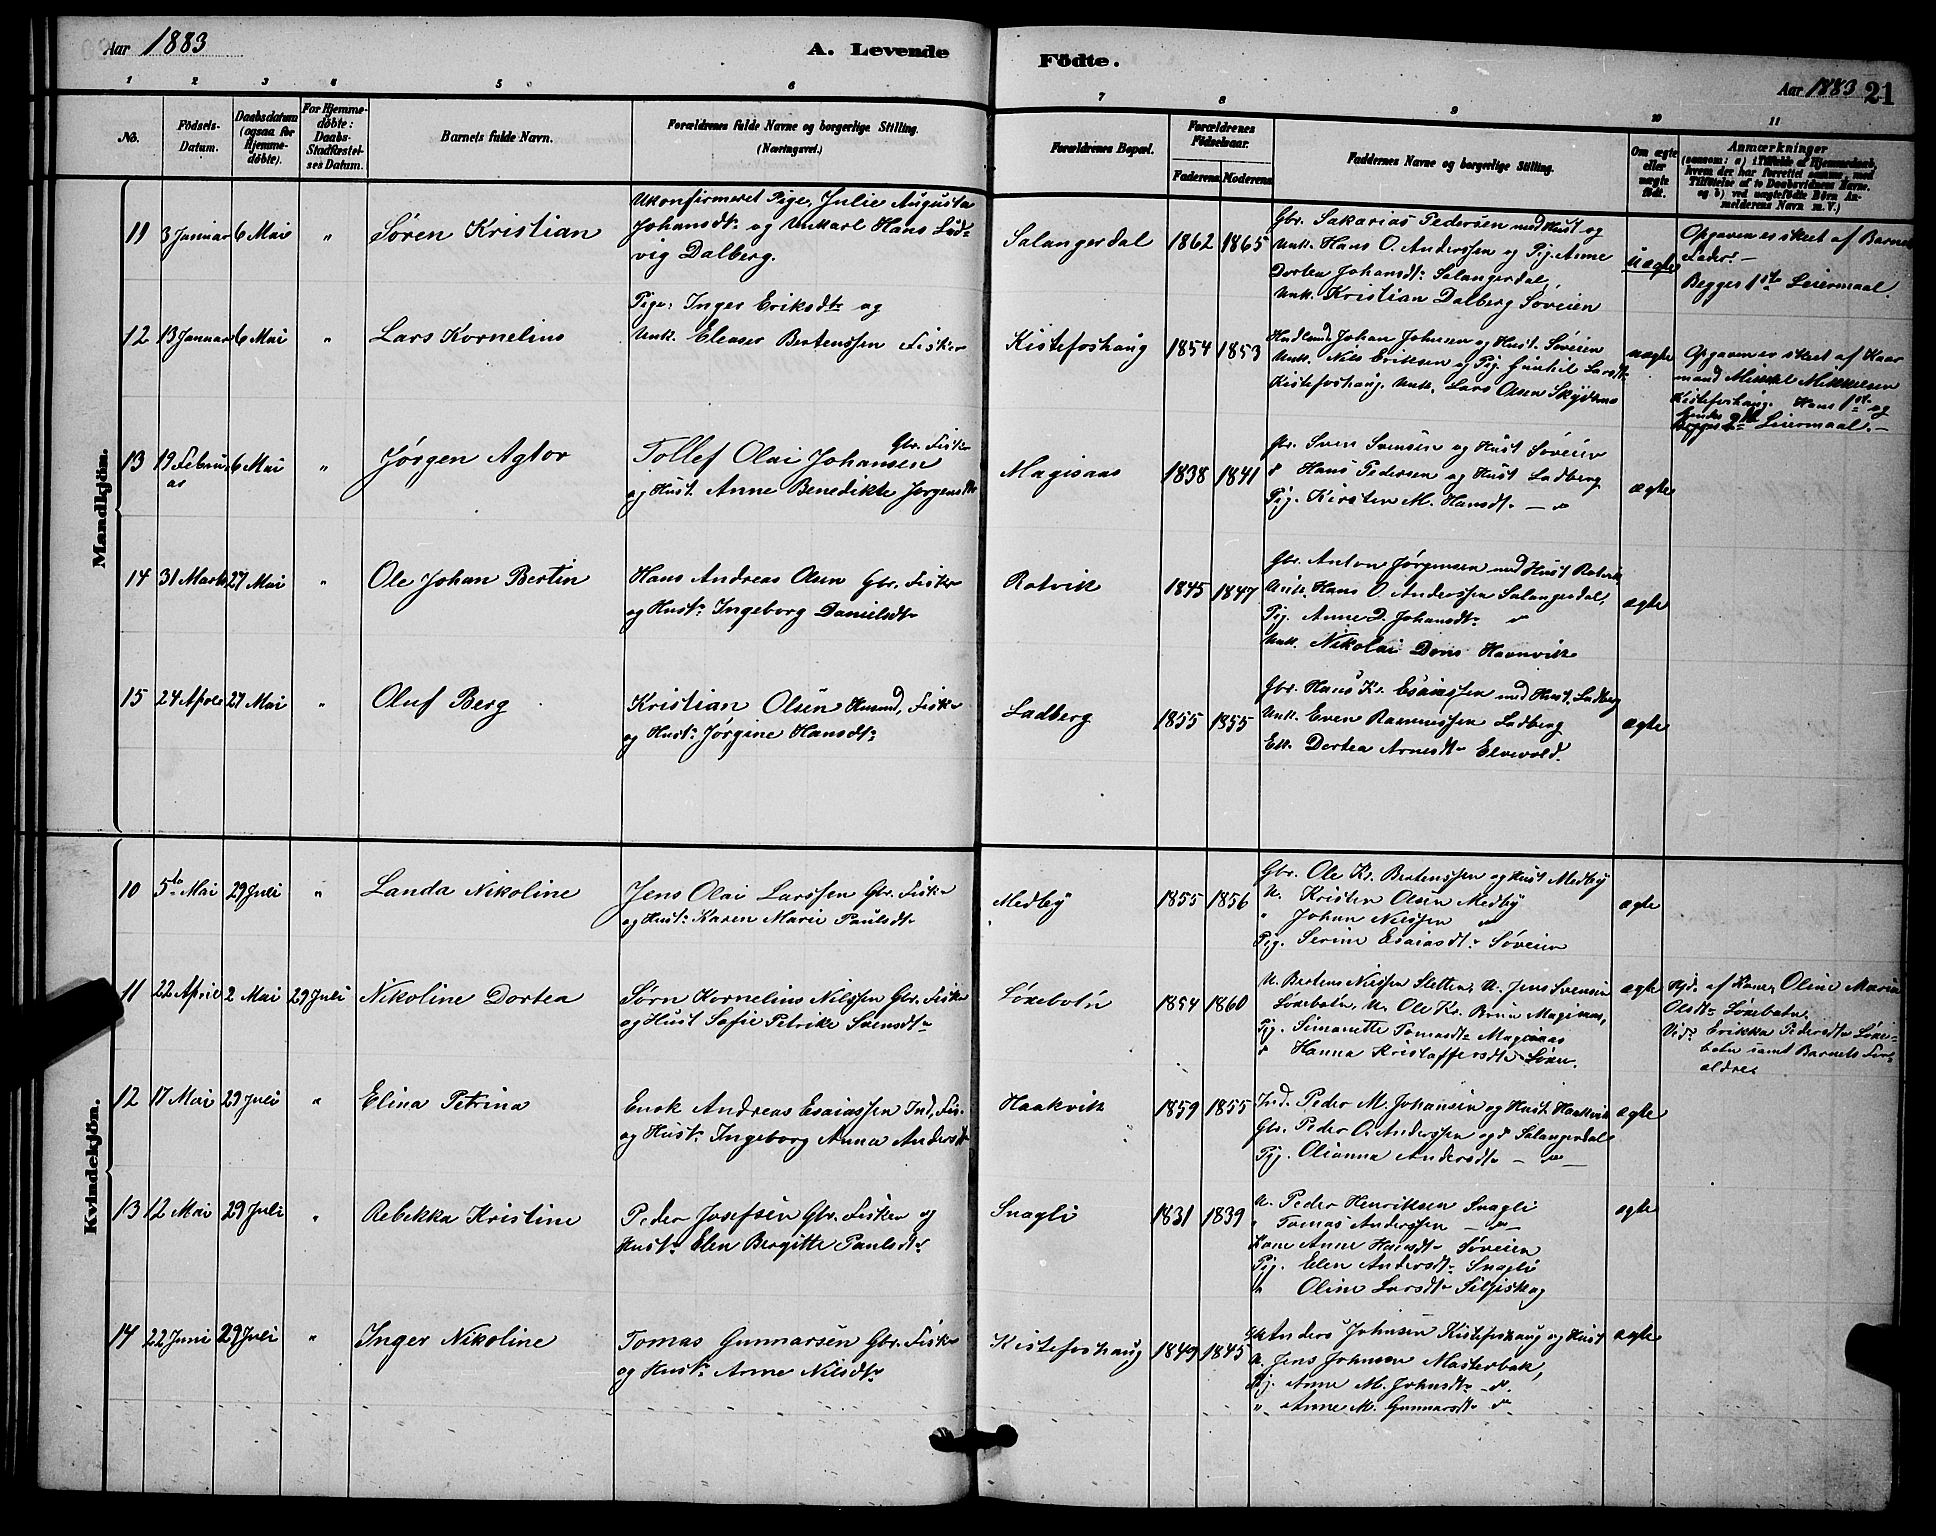 Aar 1883
A. Levende
Födte.
Aar 1883 21
1 2 3 4 5 6 7 8 9 10 11
No.
Födsels-
Datum.
Daabsdatum
(ogsaa for
Hjemme-
döbte).
For Hjemme-
döbte:
Daabs-
Stadfæstel-
ses Datum.
Barnets fulde Navn.
Forældrenes fulde Navne og borgerlige Stilling.
(Næringsvei.)
Forældrenes Bopæl.
Forældrenes
Födselsaar.
Faderens Moderens
Faddernes Navne og borgerlige Stilling.
Om ægte
eller
uægte
födt.
Anmærkninger
(saasom: a) i Tilfælde af Hjemmedaab,
hvem der har forrettet samme, med
Tilföielse af to Daabsvidners Navne.
og b) ved uægtefödte Börn An-
melderens Navn m. V.)
Mandkjön.
11 3 Januar 6 Mai " Søren Kristian
Ukonfirmeret Pige, Julie Augusta
Johansdt. og Unkarl Hans Lud-
vig Dalberg.
Salangerdal 1862 1865
Gbr. Sakarias Pedersen med Hust og
Unk. Hans O. Anderssen og Pig. Anne
Dortea Johansdt. Salangerdal,
Unk. Kristian Dalberg Søveien
uægte
Opgaven er skeet af Barnets
Fader. –
Begges 1ste Leiermaal.
12 13 Januar 6 Mai " Lars Kornelius
Pige, Inger Eriksdtr og
Unk. Eleaser Bertenssen Fisker
Kistefoshaug 1854 1853
Husmd Johan Johnsen og Hust. Søveien
Unk. Nils Eriksen og Pig. Gunhil Larsdt.
Kistefoshaug, Unk. Lars Olsen
uægte
Opgaven er skeet af Kaar
mand Mikkel Mikkelsen
Kistefoshaug. Hans 1ste og
hendes 2det Leiermaal. –
13 19 Febru 6 Mai "
ar
Jørgen Agtor
Tollef Olai Johansen Gbr. Fisker
og Hust. Anne Benedikte Jørgensdtr
Magisaas 1838 1841
Gbr. Sven Svensen og Hust Søveien
" Hans Pedersen og Hust Ladberg
Pig. Kirsten M. Hansdt. – "
ægte
14 31 Marts 27 Mai " Ole Johan Bertin
Hans Andreas Olsen Gbr. Fisker
og Hust. Ingeborg Danielsdt.
Rotvik 1845 1847
Gbr. Anton Jørgensen med Hust Rotvik
Unk. Hans O. Anderssen Salangerdal,
Pig. Anne D. Johansdt. "
Unk. Nikolai Dons Havnvik
ægte
15 24 April 27 Mai " Oluf Berg
Kristian Olsen Husmd, Fisker
og Hust. Jørgine Hansdt.
Ladberg 1855 1855
Gbr. Hans Kr. Esaiassen med Hust. Ladberg
Unk. Even Rasmussen Ladberg
Enk. Dortea Arnesdt. Elvevold.
ægte
Kvindekjön.
10 5te Mai 29 Juli " Landa Nikoline
Jens Olai Larssen Gbr. Fisker
og Hust. Karen Marie Paulsdt.
Medby 1855 1856
Gbr. Ole Kr. Bertenssen og Hust Medby
U. Kristen Olsen Medby
" Johan Nilssen "
Pig. Serine Esaiasdt. Søveien
ægte
11 22 April 2 Mai 29 Juli Nikoline Dortea
Sørn Kornelius Nilssen Gbr. Fisker
og Hust Sofie Petrike Svensdt.
Løxebotn 1854 1860
U. Bertens Nilssen Sletten, U. Jens Svensen
Løxebotn, U. Ole Kr. Brun Magisaas,
Pig. Simonette Tomasdt. Magisaas
" Hanna Kristoffersdt. Løxen.
ægte
Hjd. af Kone, Oline Maria
Olsdt. Løxebotn,
Vid. Erikka Pedersdt. Løxe-
botn samt Barnets For-
ældre.
12 17 Mai 29 Juli " Elina Petrina
Enok Andreas Esaiassen Ind, Fis.
og Hust. Ingeborg Anna Andersdt.
Haakvik 1859 1855
Ind. Peder M. Johansen og Hust. Haakvik
Gbr. Peder O. Anderssen og " Salangerdal
Pig. Olianna Andersdt. – " –
ægte
13 12 Mai 29 Juli " Rebekka Kristine
Peder Josefsen Gbr. Fisker og
Hust. Elen Bergitte Paulsdt.
Snagli 1831 1839
U. Peder Henriksen Snagli
" Tomas Anderssen – " –
Kone Anne Hansdt. Søveien
Pig. Elen Andersdt. Snagli
" Oline Larsdt. Siljeskog
ægte
14 22 Juni 29 Juli " Inger Nikoline
Tomas Gunnarsen Gbr. Fisker
og Hust. Anne Nilsdt.
Kistefoshaug 1849 1845
Gbr Anders Johnsen Kistefoshaug og Hust
U. Jens Johnsen Masterbak,
Pig. Anne M. Johnsdt. – ".
" Anne M. Gunnarsdt. "
ægte